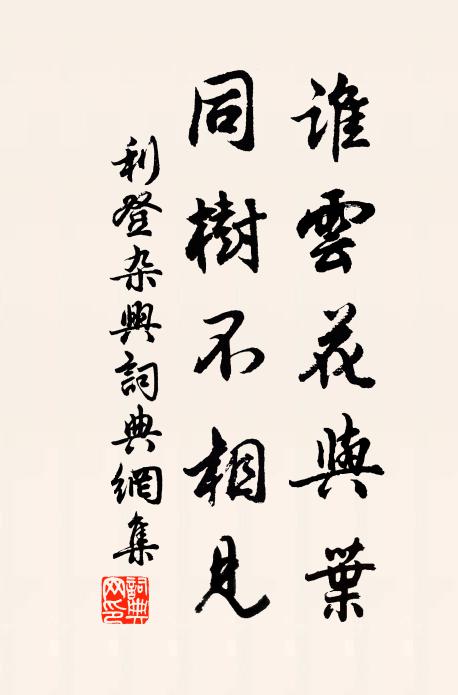 誰雲花與葉
同樹不相見
利登杂興詞典網集
詞典网印